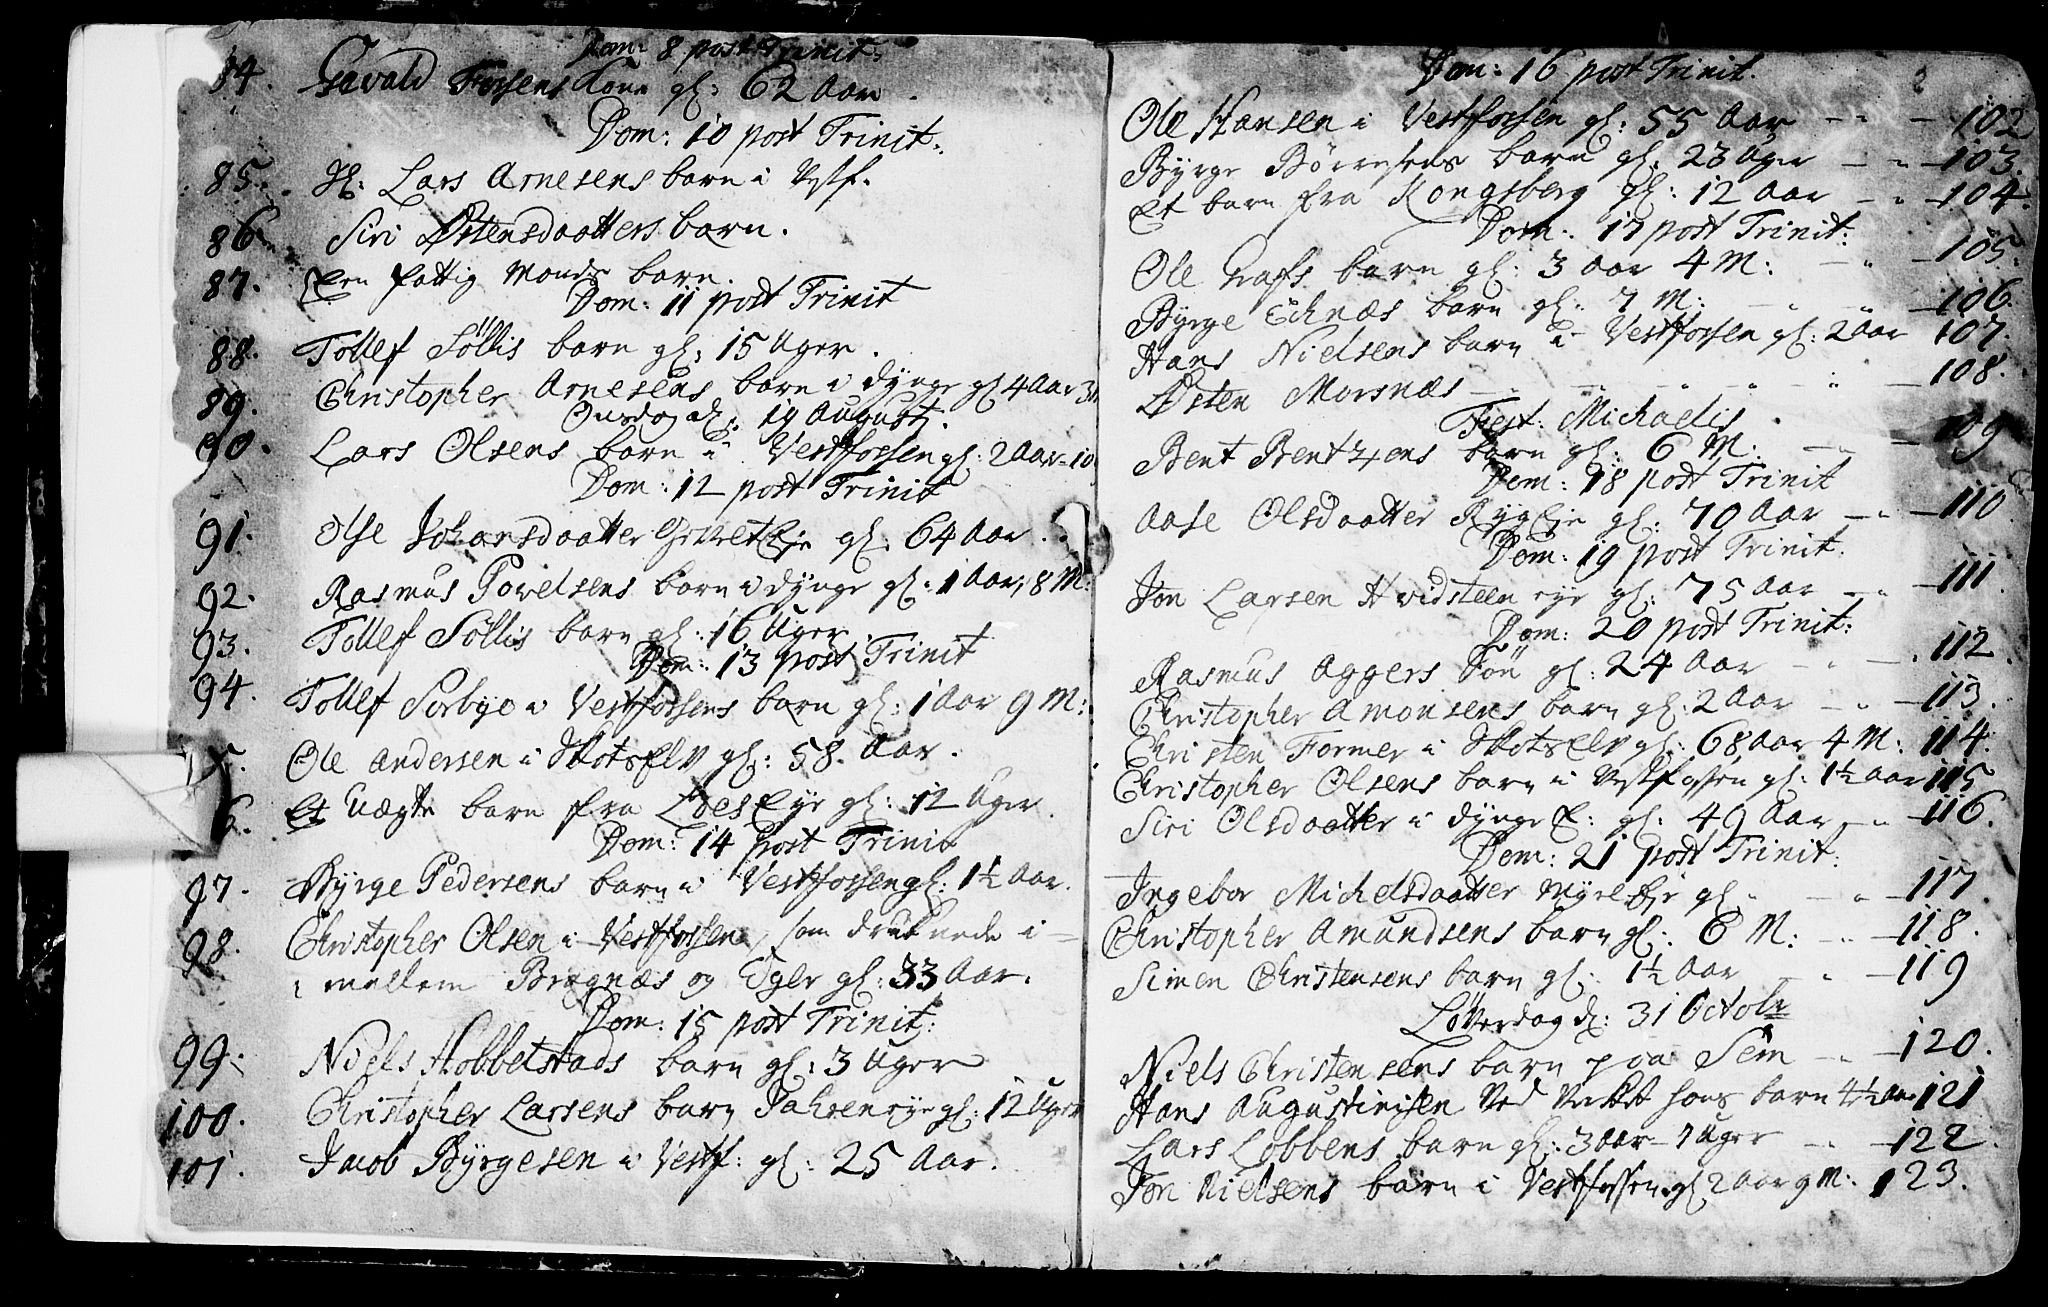 Dom: 8 post Trinit:
84. Kone gl: 62 Aar.
Dom: 10 post Trinit:
85. Gl: Lars Arnesens barn i Vestf.
86. Siri Østensdaatters barn.
87. Een fattig Mands barn.
Dom: 11 post Trinit
88. Tollef Söllis barn gl: 15 Uger.
89. Christopher Arnesens barn i dynge gl 4 Aar 3 M
Onsdag d: 19 August.
90. Lars Olsens barn i Vestfossen gl: 2 Aar 10
Dom: 12 post Trinit
91. Else Johansdaatter Eje gl. 64 Aar.
92. Rasmus Povelsens barn i dynge gl: 1 Aar, 8 M:
93. Tollef Söllis barn gl: 16 Uger
Dom: 13 post Trinit
94. Tollef Sorbye i Vestfossens barn gl: 1 Aar 9 M:
5. Ole Andersen i Skotselv gl: 58 Aar.
6. Et Uægte barn fra Loes Eye gl: 12 Uger.
Dom: 14 post Trinit
97. Byrge Pedersens barn i Vestfossen gl: 1½ Aar.
98. Christopher Olsen i Vestfossen, som druknede i-
mellem Bragnæs og Eger gl: 33 Aar.
Dom: 15 post Trinit:
99: Niels Hobbelstads barn gl: 3 Uger
100. Christopher Larsens barn eye gl: 12 Uger
101. Jacob Byrgesen i Vestf: gl: 25 Aar.
Dom: 16 post Trinit.
Ole Hansen i Vestfossen gl: 55 Aar - - 102
Byrge Börresens barn gl: 23 Uger - - 103.
Et barn fra Kongsberg gl: 12 Aar - - 104.
Dom: 17 post Trinit:
Ole barn gl: 3 Aar 4 M: - - 105.
Byrge Echnæs barn gl: 7 M: - - 106.
Hans Nielsens barn i Vestfossen gl: 2 Aar 107.
Østen Morsnæs - - - 108.
Fest: Michaelis.
Bent Bentzens barn gl: 6 M: - - 109
Dom: 18 post Trinit
Aase Olsdaatter Ryg Eje gl: 70 Aar - - 110
Dom: 19 post Trinit:
Jon Larsen Hvidsteen eye gl: 75 Aar - - 111
Dom: 20 post Trinit:
Rasmus Aggers Sön gl: 24 Aar - - 112.
Christopher Amonsens barn gl: 2 Aar - - 113.
Christen Former i Skotselv gl: 68 Aar 4 M: 114.
Christopher Olsens barn i Vestfossen gl: 1½ Aar 115
Siri Olsdaatter i dynge E: gl: 49 Aar - - 116.
Dom: 21 post Trinit:
Ingebor Michelsdaatter Myre Eje gl: - - 117
Christopher Amundsens barn gl: 6 M: - - 118.
Simen Christensens barn gl: 1½ Aar - - 119
Löverdag d: 31 Octobr
Niels Christensens barn paa Sem - - 120.
Hans Augustinisen Ved Verket hans barn 4½ Aar 121
Lars Lobbens barn gl: 3 Aar 7 Uger - - 122.
Jon Nielsens barn i Vestfossen gl 2 Aar 9 M: 123.